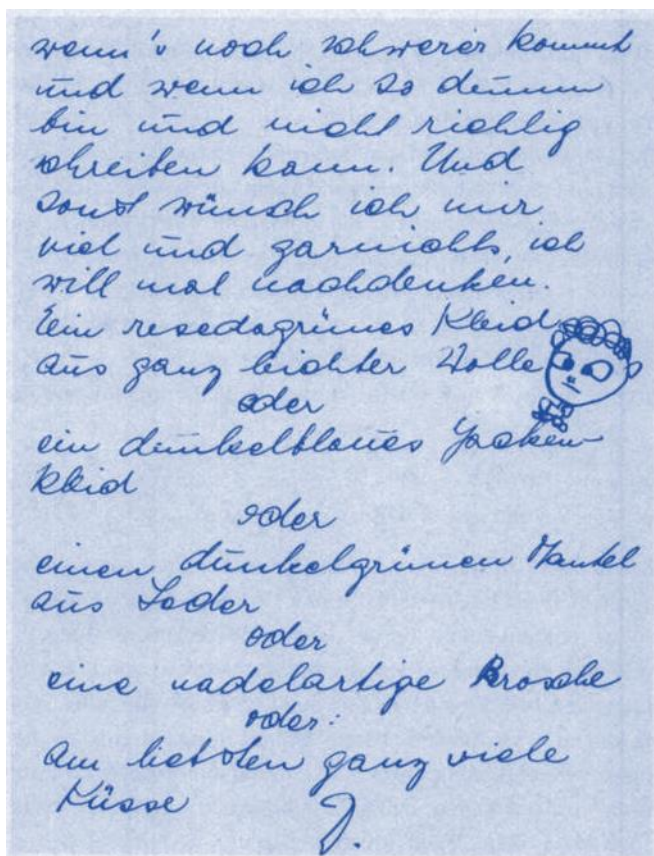 wenn's noch schwerer kommt
und wenn ich so dumm
bin und nicht richtig
schreiben kann. Und
sonst wünsch ich mir
viel und garnichts, ich
will mal nachdenken.
Ein resedagrünes Kleid
aus ganz leichter Wolle
oder
ein dunkelblaues Jacken-
kleid
oder
einen dunkelgrünen Mantel
aus Loden
oder
eine nadelartige Brosche
oder:
am liebsten ganz viele
Küsse J.